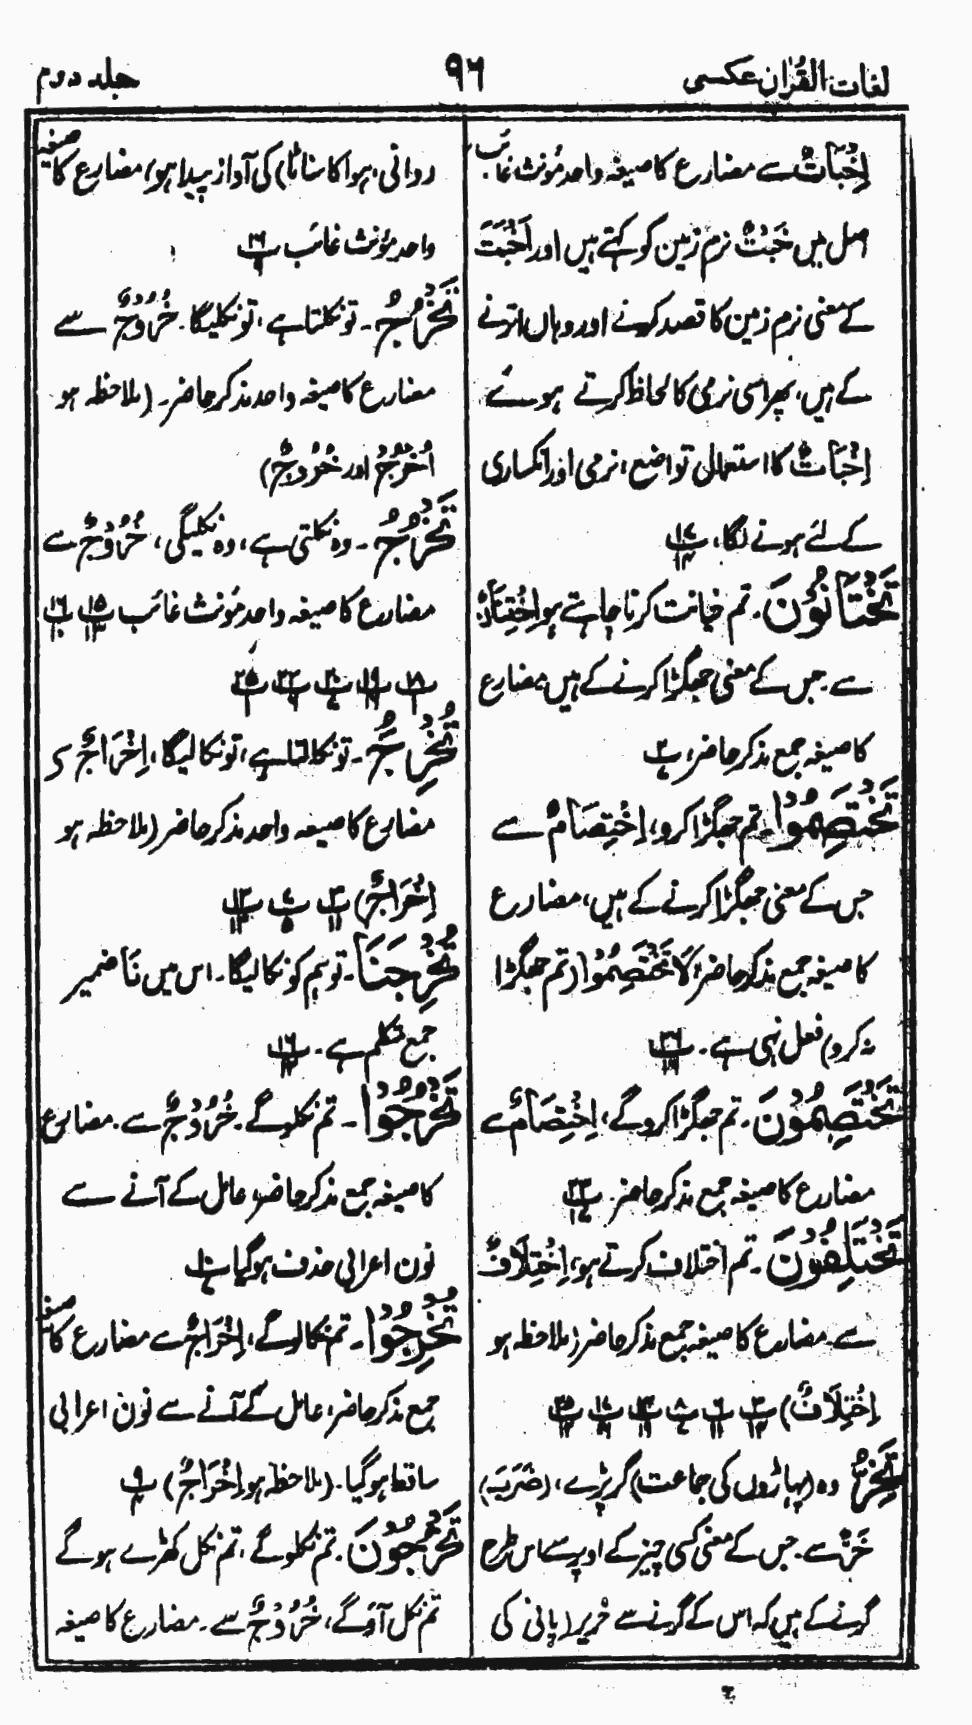 لغات القرآن عکسی
۹۶
جلد دوم
اِخْبَاتٌ سے مضارع کا صیغہ واحد مؤنث غائب،
اصل میں خَبْتٌ نرم زمین کو کہتے ہیں اور اَخْبَتَ
کے معنی نرم زمین کا قصد کرنے اور وہاں اترنے
کے ہیں، پھر اسی نرمی کا لحاظ کرتے ہوئے
اِخْبَاتٌ کا استعمال تواضع، نرمی اور انکساری
کے لئے ہونے لگا،
تَخْتَانُوْنَ۔ تم خیانت کرنا چاہتے ہو اِخْتِيَانٌ
سے۔ جس کے معنی جھگڑا کرنے کے ہیں مضارع
کا صیغہ جمع مذکر حاضر،
تَخْتَصِمُوْا۔ تم جھگڑا کرو، اِخْتِصَامٌ سے
جس کے معنی جھگڑا کرنے کے ہیں، مضارع
کا صیغہ جمع مذکر حاضر، لَا تَخْتَصِمُوْا (تم جھگڑا
نہ کرو) فعل نہی ہے۔
تَخْتَصِمُوْنَ۔ تم جھگڑا کروگے، اِخْتِصَامٌ سے
مضارع کا صیغہ جمع مذکر حاضر۔
تَخْتَلِفُوْنَ۔ تم اختلاف کرتے ہو، اِخْتِلَافٌ
سے۔ مضارع کا صیغہ جمع مذکر حاضر (ملاحظہ ہو
اِخْتِلَافٌ)
تَخِرُّ وہ (پہاڑوں کی جماعت) گر پڑے، (ضَرَبَ)
خَرٌّ سے۔ جس کے معنی کسی چیز کے اوپر سے اس طرح
گرنے کے ہیں کہ اس کے گرنے سے خریر (پانی کی
روانی، ہوا کا سناٹا) کی آواز پیدا ہو، مضارع کا صیغہ
واحد مؤنث غائب
تَخْرُجُ۔ تو نکلتا ہے، تو نکلیگا۔ خُرُوْجٌ سے
مضارع کا صیغہ واحد مذکر حاضر۔ (ملاحظہ ہو
اُخْرُجْ اور خُرُوْجٌ)
تَخْرُجُ۔ وہ نکلتی ہے، وہ نکلیگی، خُرُوْجٌ سے
مضارع کا صیغہ واحد مؤنث غائب
تُخْرِجُ۔ تو نکالتا ہے، تو نکالیگا، اِخْرَاجٌ سے
مضارع کا صیغہ واحد مذکر حاضر (ملاحظہ ہو
اِخْرَاجٌ)
تُخْرِجَنَا۔ تو ہم کو نکالیگا۔ اس میں نَا ضمیر
جمع متکلم ہے۔
تَخْرُجُوْا۔ تم نکلوگے۔ خُرُوْجٌ سے۔ مضارع
کا صیغہ جمع مذکر حاضر، عامل کے آنے سے
نون اعرابی حذف ہوگیا ہے
تُخْرِجُوْا۔ تم نکالوگے، اِخْرَاجٌ سے مضارع کا صیغہ
جمع مذکر حاضر، عامل کے آنے سے نون اعرابی
ساقط ہوگیا۔ (ملاحظہ ہو اِخْرَاجٌ)
تَخْرُجُوْنَ۔ تم نکلوگے، تم نکل کھڑے ہوگے
تم نکل آؤگے، خُرُوْجٌ سے۔ مضارع کا صیغہ